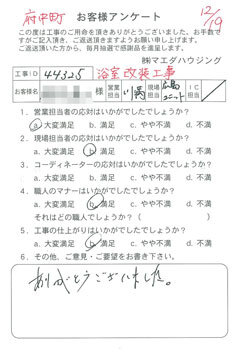 府中町 お客様アンケート 12/19
この度は工事のご用命を頂きありがとうございました。お手数で
すがご記入頂き、ご返送頂きますようお願い申し上げます。
ご返送頂いた方から、毎月抽選で感謝品を進呈します。
㈱マエダハウジング
工事ID 44325 浴室改装工事
お客様名 様 営業担当 現場担当 IC担当
1.営業担当者の応対はいかがでしたでしょうか?
a.大変満足 b.満足 c.やや不満 d.不満
2.現場担当者の応対はいかがでしたでしょうか?
a.大変満足 b.満足 c.やや不満 d.不満
3.コーディネーターの応対はいかがでしたでしょうか?
a.大変満足 b.満足 c.やや不満 d.不満
4.職人のマナーはいかがでしたでしょうか?
a.大変満足 b.満足 c.やや不満 d.不満
それはどの職人でしょうか?( )
5.工事の仕上がりはいかがでしたでしょうか?
a.大変満足 b.満足 c.やや不満 d.不満
6.その他、ご意見・ご要望をお書き下さい。
ありがとうございました。